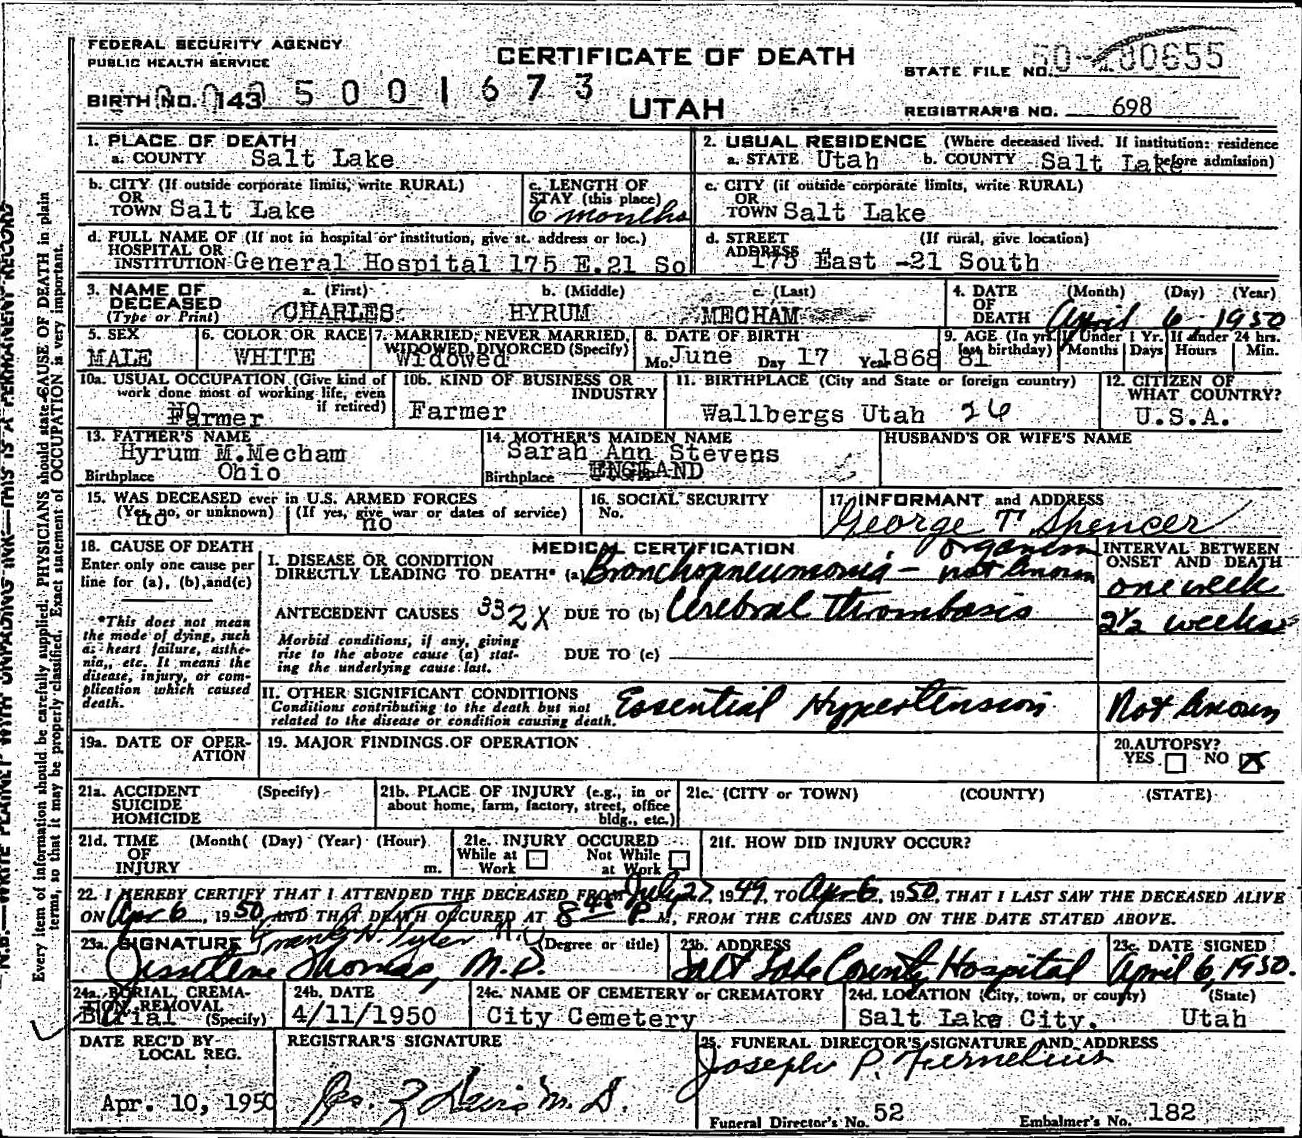 FEDERAL SECURITY AGENCY
PUBLIC HEALTH SERVICE
CERTIFICATE OF DEATH
UTAH
BIRTH NO. 143 5 0 0 1 6 7 3
STATE FILE NO. 50-
REGISTRAR'S NO. 698
1. PLACE OF DEATH
a. COUNTY Salt Lake
2. USUAL RESIDENCE (Where deceased lived. If institution: residence before admission)
a. STATE Utah b. COUNTY Salt Lake
b. CITY (If outside corporate limits, write RURAL)
OR
TOWN Salt Lake
c. LENGTH OF
STAY (this place)
6 months
c. CITY (if outside corporate limits, write RURAL)
OR
TOWN Salt Lake
d. FULL NAME OF (If not in hospital or institution, give st. address or loc.)
HOSPITAL OR
INSTITUTION General Hospital 175 E.21 So
d. STREET (If rural, give location)
ADDRESS 175 East -21 South
3. NAME OF DECEASED (Type or Print)
a. (First) b. (Middle) c. (Last)
CHARLES HYRUM MECHAM
4. DATE OF DEATH (Month) (Day) (Year)
April 6 - 1950
5. SEX
MALE
6. COLOR OR RACE
WHITE
7. MARRIED, NEVER MARRIED,
WIDOWED, DIVORCED (Specify)
Widowed
8. DATE OF BIRTH
Mo. June Day 17 Year 1868
9. AGE (In yrs. last birthday) 81
If Under 1 Yr. Months Days
If under 24 hrs. Hours Min.
10a. USUAL OCCUPATION (Give kind of
work done most of working life, even
if retired)
Farmer
10b. KIND OF BUSINESS OR
INDUSTRY
Farmer
11. BIRTHPLACE (City and State or foreign country)
Wallbergs Utah 26
12. CITIZEN OF
WHAT COUNTRY?
U.S.A.
13. FATHER'S NAME
Hyrum M.Mecham
Birthplace Ohio
14. MOTHER'S MAIDEN NAME
Sarah Ann Stevens
Birthplace ENGLAND
HUSBAND'S OR WIFE'S NAME
15. WAS DECEASED ever in U.S. ARMED FORCES
(Yes, no, or unknown) (If yes, give war or dates of service)
no no
16. SOCIAL SECURITY
No.
17. INFORMANT and ADDRESS
George T Spencer
18. CAUSE OF DEATH
Enter only one cause per
line for (a), (b), and (c)
*This does not mean
the mode of dying, such
as heart failure, asthe-
nia, etc. It means the
disease, injury, or com-
plication which caused
death.
MEDICAL CERTIFICATION
I. DISEASE OR CONDITION
DIRECTLY LEADING TO DEATH* (a) Bronchopneumonia - organism not known
ANTECEDENT CAUSES 332X DUE TO (b) Cerebral thrombosis
Morbid conditions, if any, giving
rise to the above cause (a) stat-
ing the underlying cause last.
DUE TO (c)
INTERVAL BETWEEN
ONSET AND DEATH
one week
2½ weeks
II. OTHER SIGNIFICANT CONDITIONS
Conditions contributing to the death but not
related to the disease or condition causing death.
Essential Hypertension
Not known
19a. DATE OF OPER-
ATION
19. MAJOR FINDINGS OF OPERATION
20. AUTOPSY?
YES NO X
21a. ACCIDENT (Specify)
SUICIDE
HOMICIDE
21b. PLACE OF INJURY (e.g., in or
about home, farm, factory, street, office
bldg., etc.)
21c. (CITY or TOWN) (COUNTY) (STATE)
21d. TIME (Month( (Day) (Year) (Hour)
OF
INJURY m.
21e. INJURY OCCURED
While at Work Not While at Work
21f. HOW DID INJURY OCCUR?
22. I HEREBY CERTIFY THAT I ATTENDED THE DECEASED FROM July 27 1949, TO Apr 6, 1950, THAT I LAST SAW THE DECEASED ALIVE
ON Apr 6, 1950, AND THAT DEATH OCCURED AT 8 45 P M, FROM THE CAUSES AND ON THE DATE STATED ABOVE.
23a. SIGNATURE Frank H. Tyler M.D (Degree or title)
Thomas, M.D.
23b. ADDRESS
Salt Lake County Hospital
23c. DATE SIGNED
April 6, 1950.
24a. BURIAL, CREMA-
TION, REMOVAL
Burial (Specify)
24b. DATE
4/11/1950
24c. NAME OF CEMETERY or CREMATORY
City Cemetery
24d. LOCATION (City, town, or county) (State)
Salt Lake City. Utah
DATE REC'D BY
LOCAL REG.
Apr. 10, 1950
REGISTRAR'S SIGNATURE
M. D.
25. FUNERAL DIRECTOR'S SIGNATURE AND ADDRESS
Joseph P. Fernelius
Funeral Director's No. 52 Embalmer's No. 182
N.B.—WRITE PLAINLY WITH UNFADING INK—THIS IS A PERMANENT RECORD
Every item of information should be carefully supplied. PHYSICIANS should state CAUSE OF DEATH in plain
terms, so that it may be properly classified. Exact statement of OCCUPATION is very important.